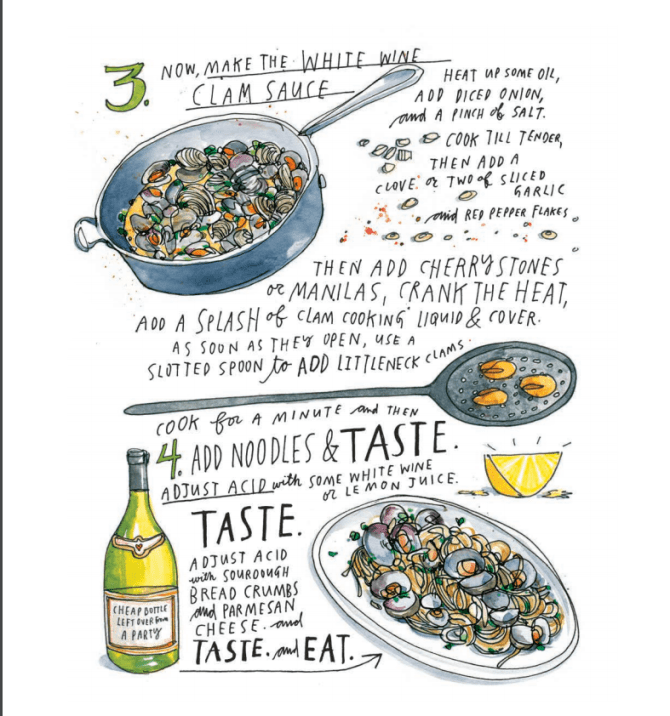 3. NOW, MAKE THE WHITE WINE
CLAM SAUCE
HEAT UP SOME OIL,
ADD DICED ONION,
and A PINCH of SALT.
COOK TILL TENDER,
THEN ADD A
CLOVE OR TWO of SLICED
GARLIC
and RED PEPPER FLAKES.
THEN ADD CHERRYSTONES
or MANILAS, CRANK THE HEAT,
ADD A SPLASH of CLAM COOKING LIQUID & COVER.
AS SOON AS THEY OPEN, USE A
SLOTTED SPOON to ADD LITTLENECK CLAMS.
COOK for A MINUTE and THEN
4. ADD NOODLES & TASTE.
ADJUST ACID with SOME WHITE WINE
or LEMON JUICE.
TASTE.
ADJUST ACID
with SOURDOUGH
BREAD CRUMBS
and PARMESAN
CHEESE. and
TASTE. and EAT.
CHEAP BOTTLE
LEFT OVER from
A PARTY